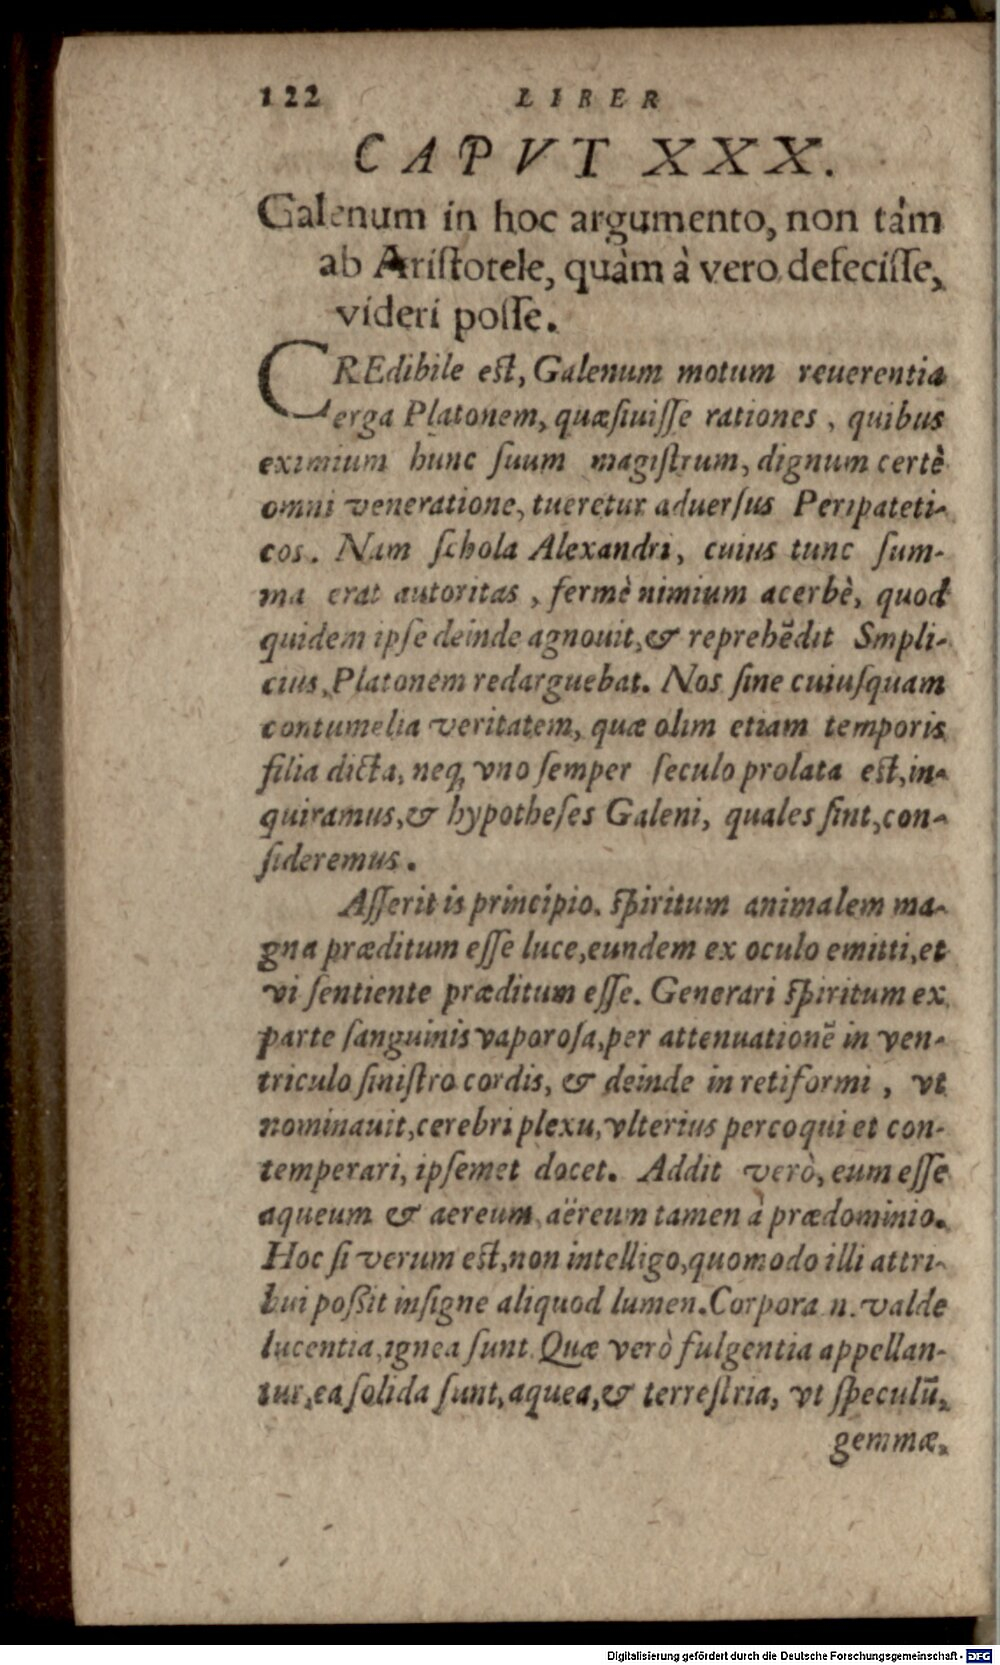 122 LIBER
CAPVT XXX.
Galenum in hoc argumento, non tàm
ab Aristotele, quàm à vero defecisse,
videri posse.
CREdibile est, Galenum motum reuerentia
erga Platonem, quæsiuisse rationes, quibus
eximium hunc suum magistrum, dignum certè
omni veneratione, tueretur aduersus Peripateti-
cos. Nam schola Alexandri, cuius tunc sum-
ma erat autoritas, fermè nimium acerbè, quod
quidem ipse deinde agnouit, & reprehēdit Smpli-
cius, Platonem redarguebat. Nos sine cuiusquam
contumelia veritatem, quæ olim etiam temporis
filia dicta, neq; vno semper seculo prolata est, in-
quiramus, & hypotheses Galeni, quales sint, con-
sideremus.
Asserit is principio, spiritum animalem ma-
gna præditum esse luce, eundem ex oculo emitti, et
vi sentiente præditum esse. Generari spiritum ex
parte sanguinis vaporosa, per attenuationē in ven-
triculo sinistro cordis, & deinde in retiformi, vt
nominauit, cerebri plexu, vlterius percoqui et con-
temperari, ipsemet docet. Addit verò, eum esse
aqueum & aereum, aëreum tamen à prædominio.
Hoc si verum est, non intelligo, quomodo illi attri-
bui possit insigne aliquod lumen. Corpora n. valde
lucentia, ignea sunt. Quæ verò fulgentia appellan-
tur, ea solida sunt, aquea, & terrestria, vt speculū,
gemmæ,
Digitalisierung gefördert durch die Deutsche Forschungsgemeinschaft - DFG